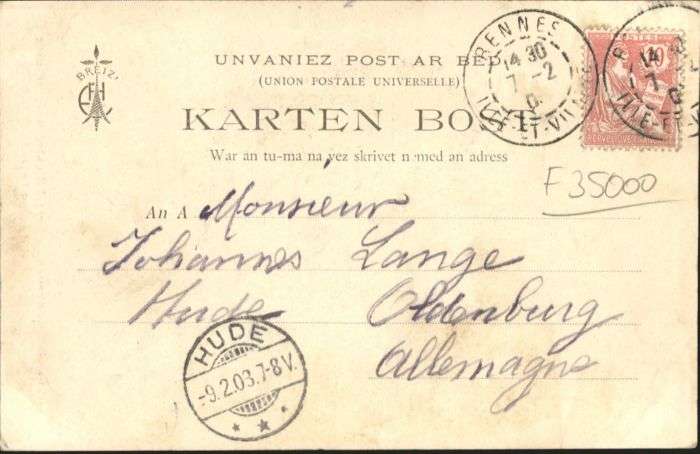 BREIZ
UNVANIEZ POST AR BED
(UNION POSTALE UNIVERSELLE)
KARTEN BOST
War an tu-ma na vez skrivet n·med an adress
RENNES
14 30
7 - 2
ILLE-ET-VILAINE
10
14
7
ILLE-E
F35000
An A Monsieur
Johannes Lange
Hude Oldenburg
Allemagne
HUDE
-9.2.03.7-8V.